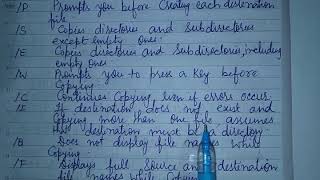 /P Prompts you before Creating each destination
file
/S Copies directories and Subdirectories
except empty ones.
/E Copies directories and Subdirectories, including
empty ones
/W Prompts you to press a Key before
Copying
/C Continues Copying, even if errors occur
/I If destination does not exist and
Copying more than one file, assumes
that destination must be a directory
/Q Does not display file names while
Copying
/F Displays full Source and destination
file names while Copying